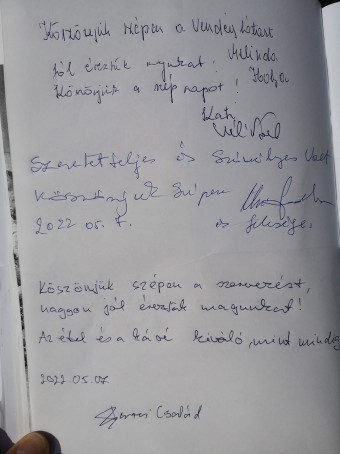 Köszönjük szépen a Vendég látást
Melinda
Jól éreztük magunkat!
Köszönjük a szép napot!
Kati
Szeretetteljes és Személyes Volt
Köszönjük Szépen
2022 05. 7. és felesége.
Köszönjük szépen a szervezést,
nagyon jól éreztük magunkat!
Az étel és a kávé kiváló, mint mindig
2022.05.07.
Család